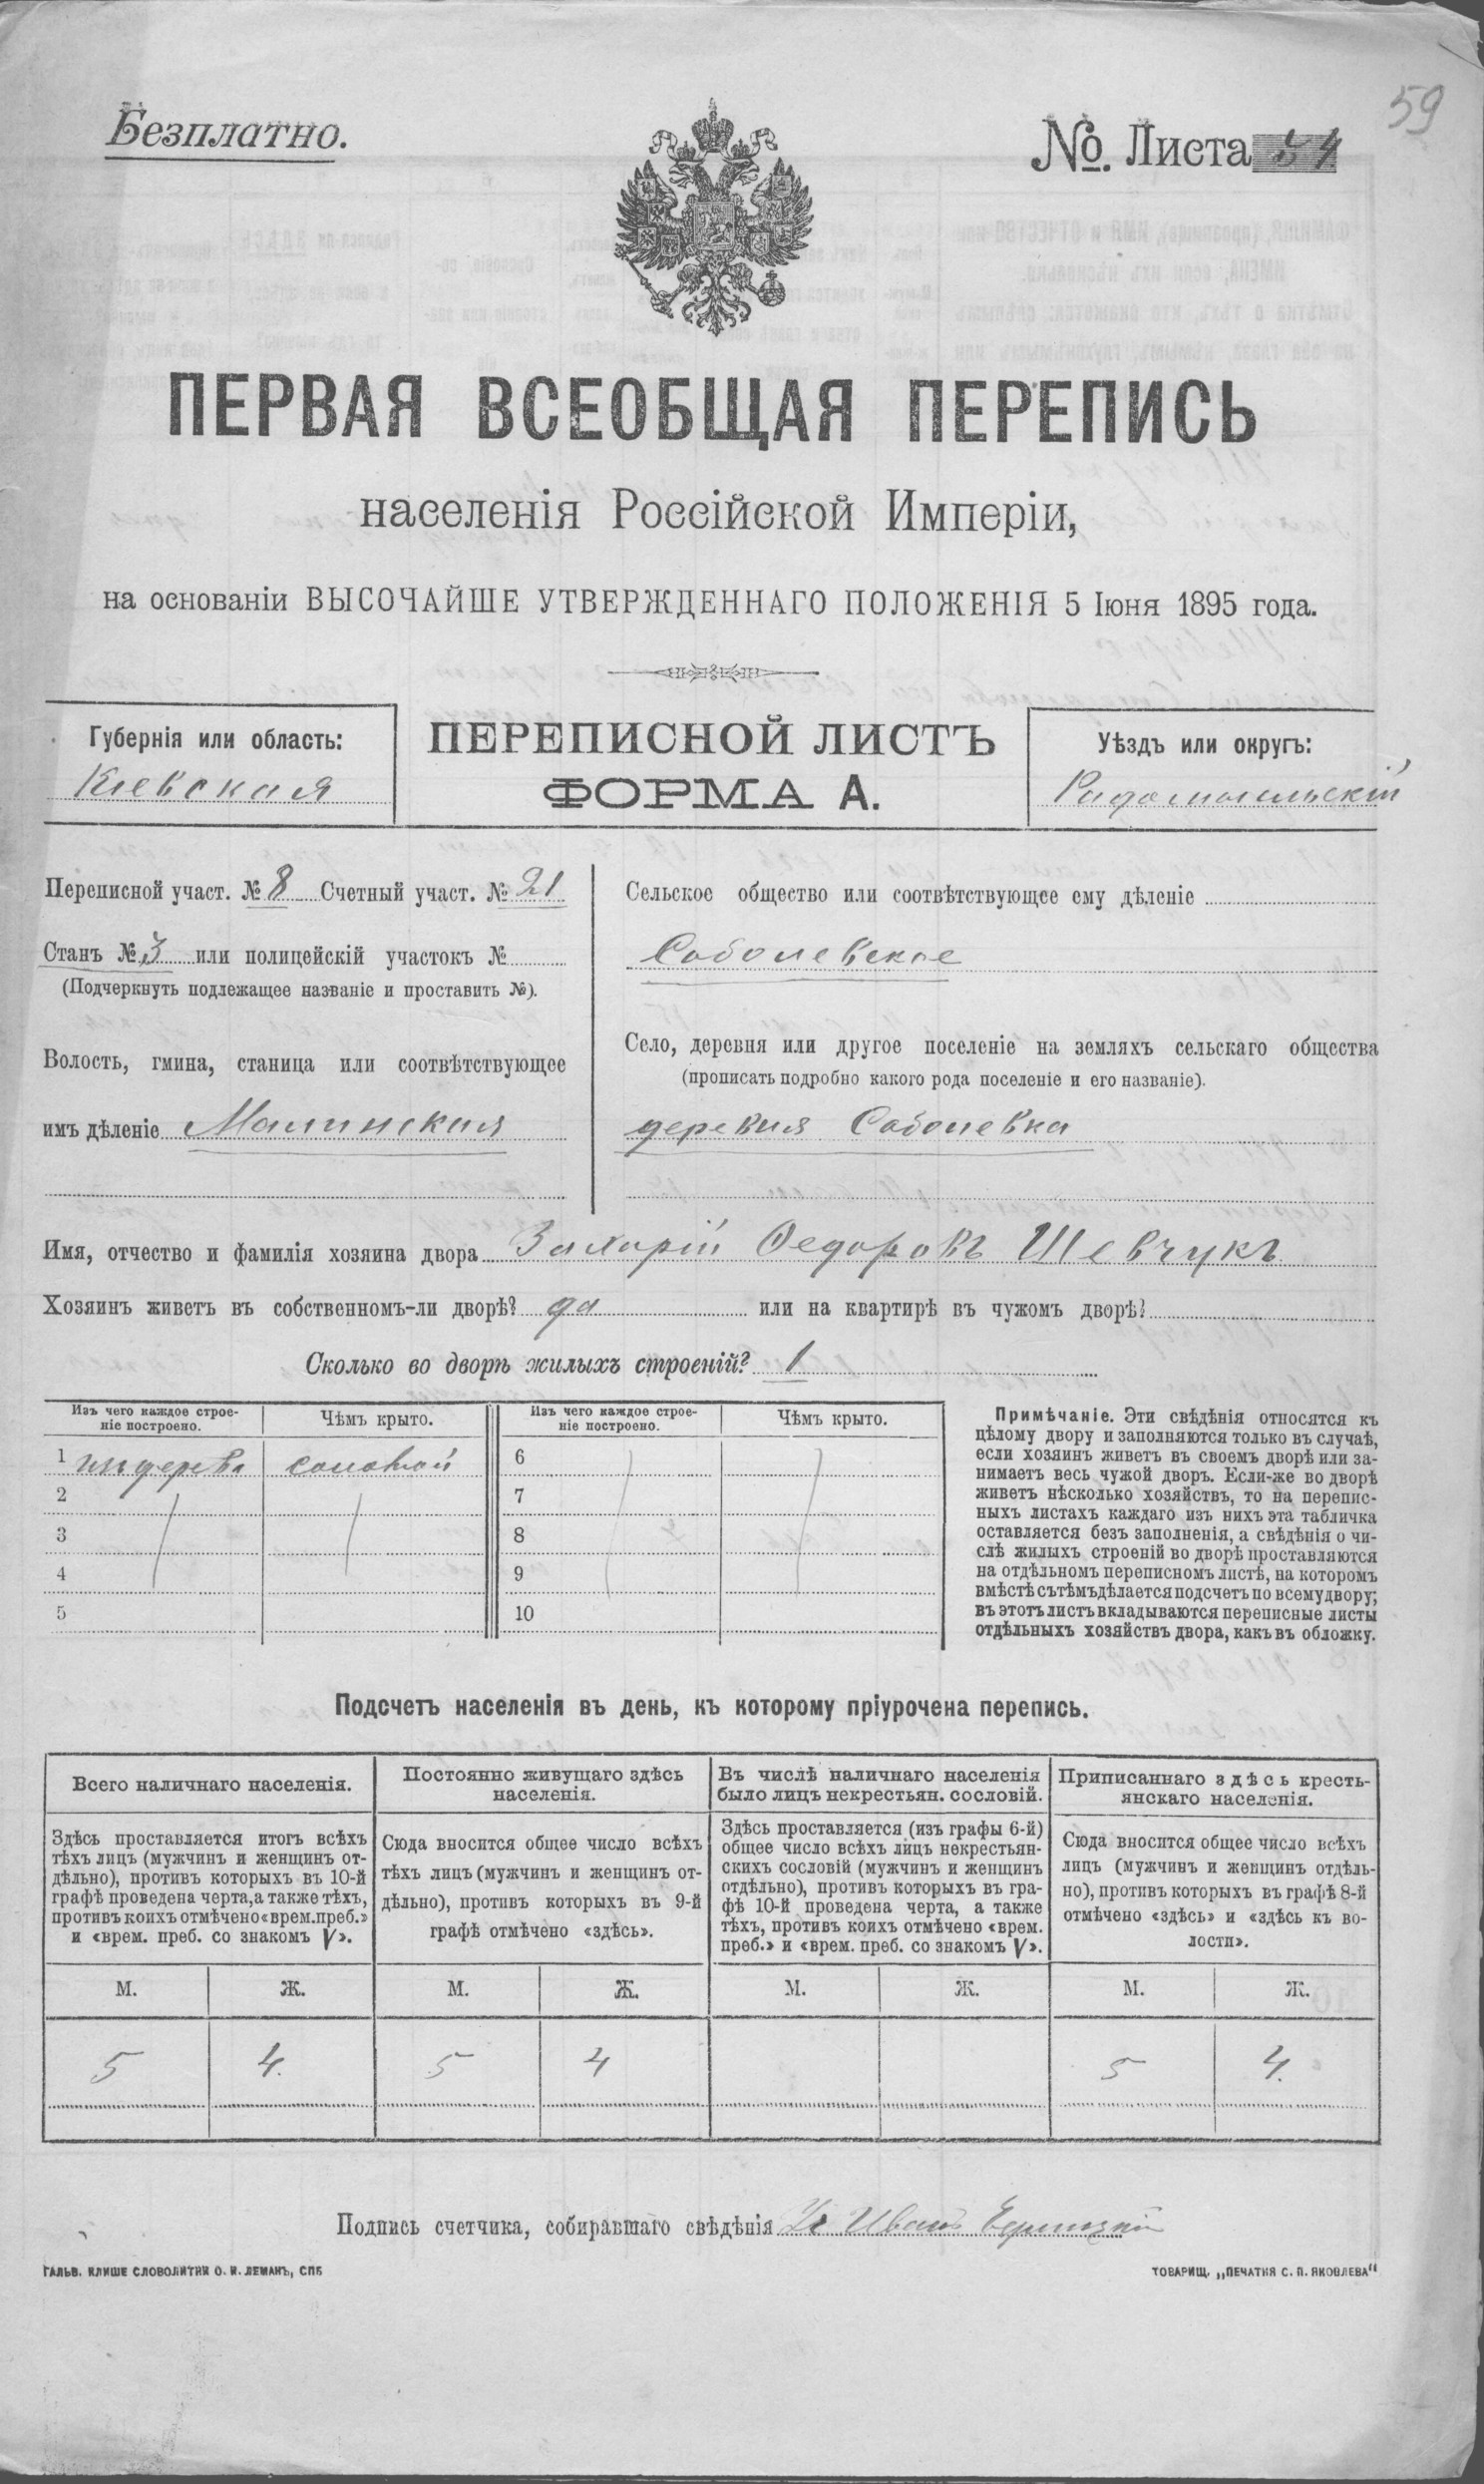 59
Безплатно.
№. Листа 54
ПЕРВАЯ ВСЕОБЩАЯ ПЕРЕПИСЬ
населенія Россійской Имперіи,
на основаніи ВЫСОЧАЙШЕ УТВЕРЖДЕННАГО ПОЛОЖЕНІЯ 5 Іюня 1895 года.
Губернія или область:
Кіевская
ПЕРЕПИСНОЙ ЛИСТЪ
ФОРМА А.
Уѣздъ или округъ:
Радомысльскій
Переписной участ. № 8 Счетный участ. № 21
Станъ № 3 или полицейскій участокъ №
(Подчеркнуть подлежащее названіе и проставить №).
Волость, гмина, станица или соотвѣтствующее
имъ дѣленіе Малинская
Сельское общество или соотвѣтствующее ему дѣленіе
Соболевское
Село, деревня или другое поселеніе на земляхъ сельскаго общества
(прописать подробно какого рода поселеніе и его названіе).
деревня Соболевка
Имя, отчество и фамилія хозяина двора Захарій Федоровъ Шевчукъ
Хозяинъ живетъ въ собственномъ-ли дворѣ? да или на квартирѣ въ чужомъ дворѣ?
Сколько во дворѣ жилыхъ строеній? 1
Изъ чего каждое строе-
ніе построено.
Чѣмъ крыто.
1 изъ дерева соломой
2
3
4
5
Изъ чего каждое строе-
ніе построено.
Чѣмъ крыто.
6
7
8
9
10
Примѣчаніе. Эти свѣдѣнія относятся къ
цѣлому двору и заполняются только въ случаѣ,
если хозяинъ живетъ въ своемъ дворѣ или за-
нимаетъ весь чужой дворъ. Если-же во дворѣ
живетъ нѣсколько хозяйствъ, то на перепис-
ныхъ листахъ каждаго изъ нихъ эта табличка
оставляется безъ заполненія, а свѣдѣнія о чи-
слѣ жилыхъ строеній во дворѣ проставляются
на отдѣльномъ переписномъ листѣ, на которомъ
вмѣстѣ сътѣмъ дѣлается подсчетъ по всему двору;
въ этотъ листъ вкладываются переписные листы
отдѣльныхъ хозяйствъ двора, какъ въ обложку.
Подсчетъ населенія въ день, къ которому пріурочена перепись.
Всего наличнаго населенія.
Здѣсь проставляется итогъ всѣхъ
тѣхъ лицъ (мужчинъ и женщинъ от-
дѣльно), противъ которыхъ въ 10-й
графѣ проведена черта, а также тѣхъ,
противъ коихъ отмѣчено «врем. преб.»
и «врем. преб. со знакомъ V».
Постоянно живущаго здѣсь
населенія.
Сюда вносится общее число всѣхъ
тѣхъ лицъ (мужчинъ и женщинъ от-
дѣльно), противъ которыхъ въ 9-й
графѣ отмѣчено «здѣсь».
Въ числѣ наличнаго населенія
было лицъ некрестьян. сословій.
Здѣсь проставляется (изъ графы 6-й)
общее число всѣхъ лицъ некрестьян-
скихъ сословій (мужчинъ и женщинъ
отдѣльно), противъ которыхъ въ гра-
фѣ 10-й проведена черта, а также
тѣхъ, противъ коихъ отмѣчено «врем.
преб.» и «врем. преб. со знакомъ V».
Приписаннаго здѣсь кресть-
янскаго населенія.
Сюда вносится общее число всѣхъ
лицъ (мужчинъ и женщинъ отдѣль-
но), противъ которыхъ въ графѣ 8-й
отмѣчено «здѣсь» и «здѣсь къ во-
лости».
М. Ж. М. Ж. М. Ж. М. Ж.
5 4. 5 4 5 4.
Подпись счетчика, собиравшаго свѣдѣнія Иванъ
ГАЛЬВ. КЛИШЕ СЛОВОЛИТНИ О. И. ЛЕМАНЪ, СПБ
ТОВАРИЩ. „ПЕЧАТНЯ С. П. ЯКОВЛЕВА"